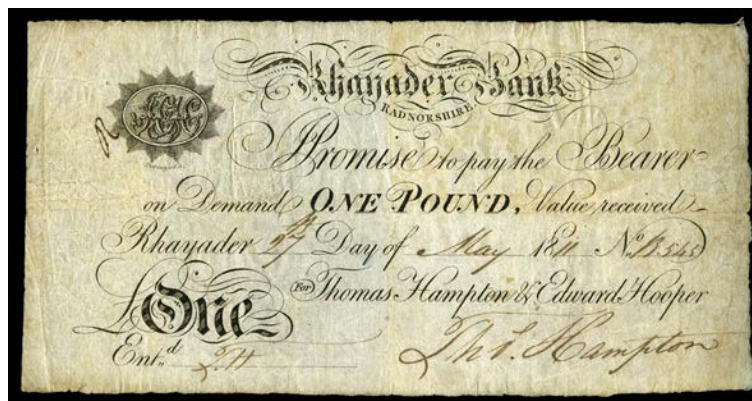 Rhayader Bank
RADNORSHIRE.
R
Promise to pay the Bearer
on Demand ONE POUND, Value received
Rhayader 27th Day of May 1811 No. B545
£One
For Thomas Hampton & Edward Hooper
Entd. T.H
Thos. Hampton